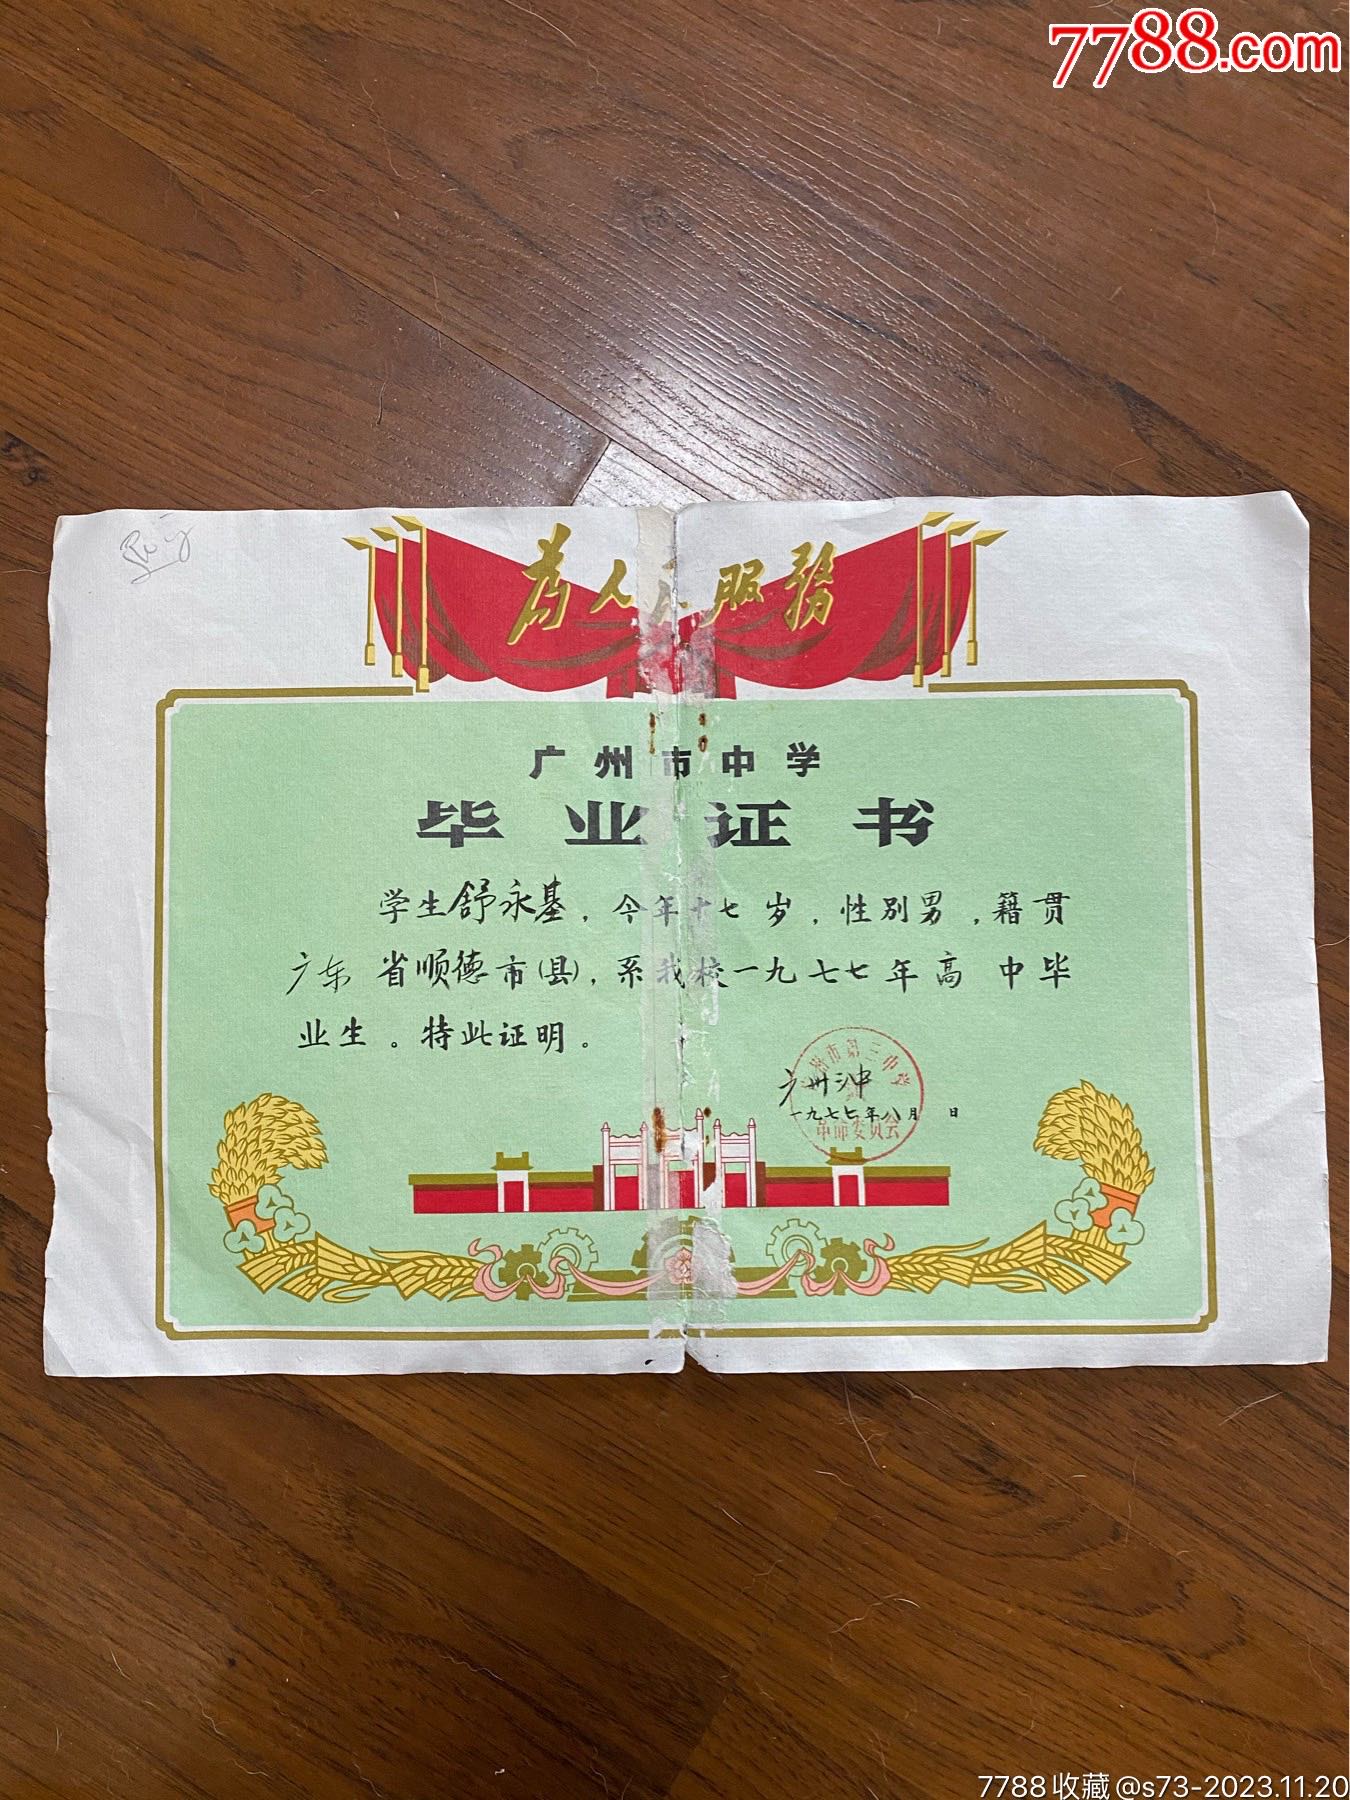 7788.com
为人民服務
广州市中学
毕业证书
学生舒永基，今年十七岁，性别男，籍贯
广东省顺德市(县)，系我校一九七七年高中毕
业生。特此证明。
广州市第三中学
广州三中
一九七七年八月 日
革命委员会
7788收藏@s73-2023.11.20